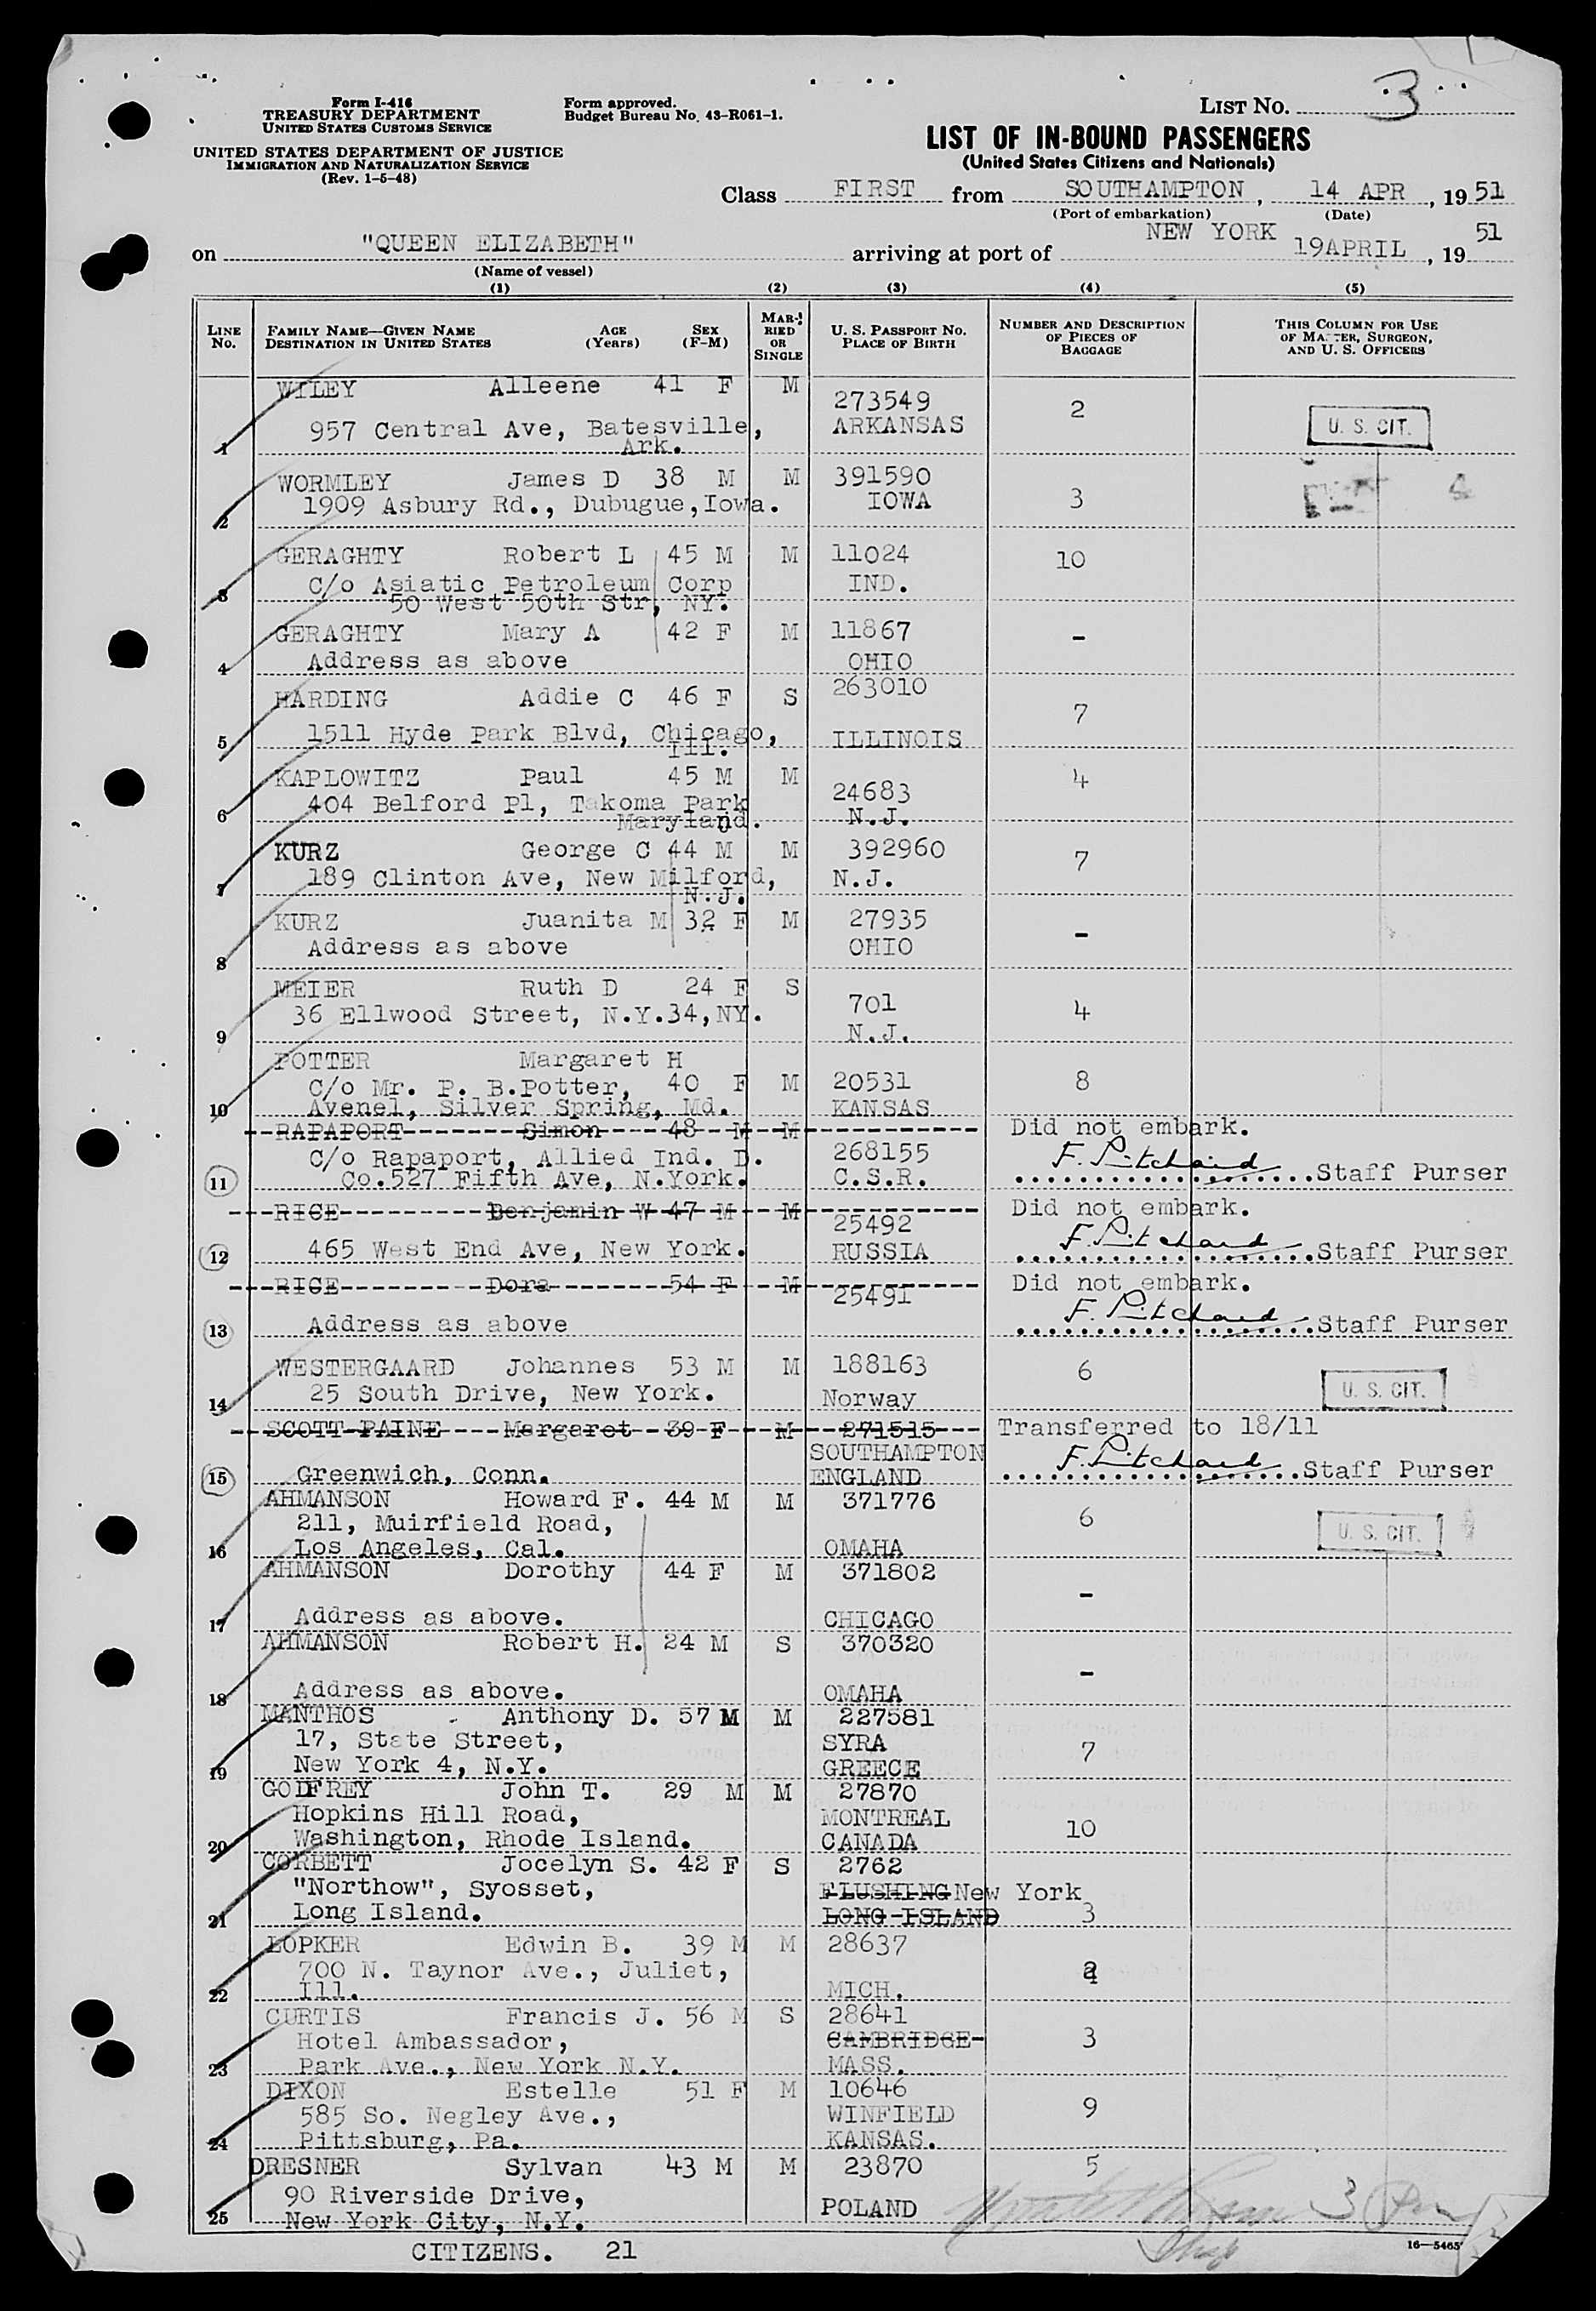 Form I-416
TREASURY DEPARTMENT
UNITED STATES CUSTOMS SERVICE
UNITED STATES DEPARTMENT OF JUSTICE
IMMIGRATION AND NATURALIZATION SERVICE
(Rev. 1-5-48)
Form approved.
Budget Bureau No. 43-R061-1.
LIST NO. 3
LIST OF IN-BOUND PASSENGERS
(United States Citizens and Nationals)
Class FIRST from SOUTHAMPTON, 14 APR, 1951
(Port of embarkation) (Date)
on "QUEEN ELIZABETH" arriving at port of NEW YORK 19APRIL, 19 51
(Name of vessel)
(1) (2) (3) (4) (5)
LINE NO.
FAMILY NAME—GIVEN NAME AGE SEX
DESTINATION IN UNITED STATES (Years) (F-M)
MARRIED OR SINGLE
U. S. PASSPORT NO.
PLACE OF BIRTH
NUMBER AND DESCRIPTION
OF PIECES OF
BAGGAGE
THIS COLUMN FOR USE
OF MASTER, SURGEON,
AND U. S. OFFICERS
WILEY Alleene 41 F M 273549 2
1 957 Central Ave, Batesville, ARKANSAS U. S. CIT.
Ark.
WORMLEY James D 38 M M 391590 3
2 1909 Asbury Rd., Dubugue, Iowa. IOWA
GERAGHTY Robert L 45 M M 11024 10
3 C/o Asiatic Petroleum Corp IND.
50 West 50th Str, NY.
GERAGHTY Mary A 42 F M 11867 -
4 Address as above OHIO
HARDING Addie C 46 F S 263010 7
5 1511 Hyde Park Blvd, Chicago, ILLINOIS
Ill.
KAPLOWITZ Paul 45 M M 24683 4
6 404 Belford Pl, Takoma Park N.J.
Maryland.
KURZ George C 44 M M 392960 7
7 189 Clinton Ave, New Milford, N.J.
N.J.
KURZ Juanita M 32 F M 27935 -
8 Address as above OHIO
MEIER Ruth D 24 F S 701 4
9 36 Ellwood Street, N.Y.34, NY. N.J.
POTTER Margaret H
C/o Mr. P. B. Potter, 40 F M 20531 8
10 Avenel, Silver Spring, Md. KANSAS
RAPAPORT Simon 48 M M Did not embark.
C/o Rapaport, Allied Ind. D. 268155 F. Pritchard
11 Co. 527 Fifth Ave, N.York. C.S.R. Staff Purser
RICE Benjamin W 47 M M 25492 Did not embark.
F. Pritchard
12 465 West End Ave, New York. RUSSIA Staff Purser
RICE Dora 54 F M 25491 Did not embark.
F. Pritchard
13 Address as above Staff Purser
WESTERGAARD Johannes 53 M M 188163 6
14 25 South Drive, New York. Norway U. S. CIT.
SCOTT-PAINE Margaret 39 F M 271515 Transferred to 18/11
SOUTHAMPTON F. Pritchard
15 Greenwich, Conn. ENGLAND Staff Purser
AHMANSON Howard F. 44 M M 371776 6
211, Muirfield Road, U. S. CIT.
16 Los Angeles, Cal. OMAHA
AHMANSON Dorothy 44 F M 371802 -
17 Address as above. CHICAGO
AHMANSON Robert H. 24 M S 370320 -
18 Address as above. OMAHA
MANTHOS Anthony D. 57 M M 227581
17, State Street, SYRA 7
19 New York 4, N.Y. GREECE
GODFREY John T. 29 M M 27870
Hopkins Hill Road, MONTREAL 10
20 Washington, Rhode Island. CANADA
CORBETT Jocelyn S. 42 F S 2762
"Northow", Syosset, FLUSHING New York
21 Long Island. LONG ISLAND 3
LOPKER Edwin B. 39 M M 28637
700 N. Taynor Ave., Juliet,
22 Ill. MICH.
CURTIS Francis J. 56 M S 28641
Hotel Ambassador, CAMBRIDGE- 3
23 Park Ave., New York N.Y. MASS.
DIXON Estelle 51 F M 10646
585 So. Negley Ave., WINFIELD 9
24 Pittsburg, Pa. KANSAS.
DRESNER Sylvan 43 M M 23870 5
90 Riverside Drive, POLAND 3
25 New York City, N.Y.
CITIZENS. 21